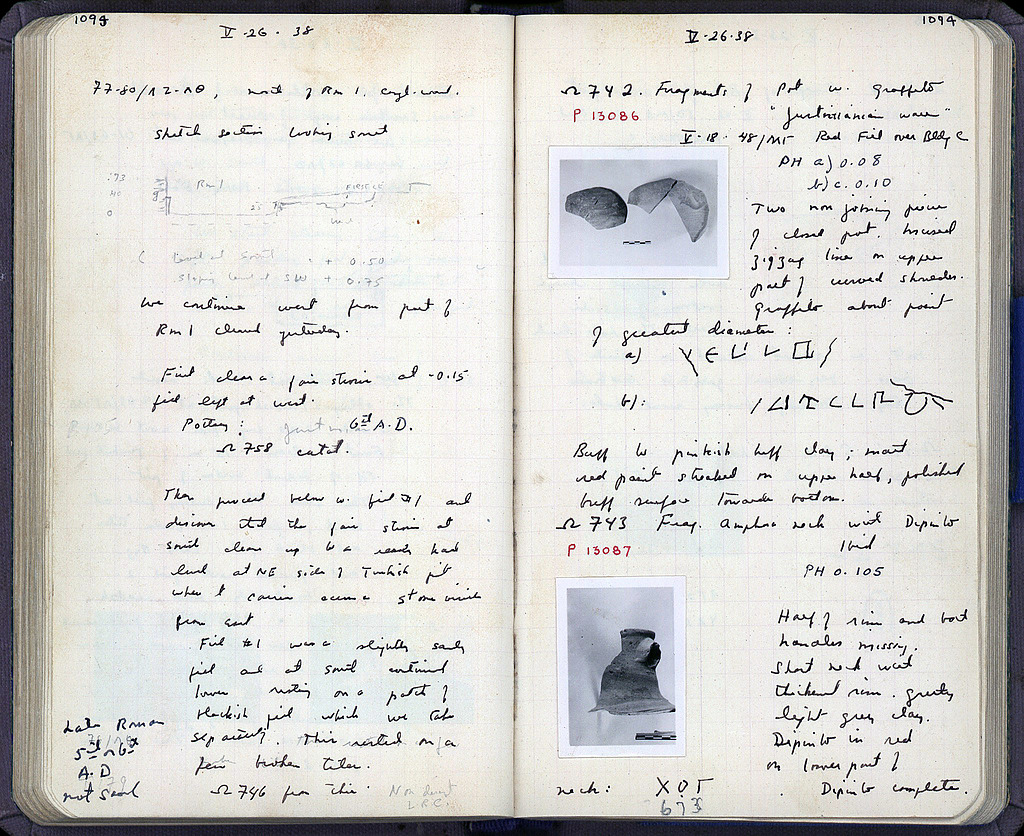 1093
V·26·38
77-80/ΛΖ-ΛΘ, north of Rm 1, cont.
Sketch section looking south
:73
40
0
Rm 1
level at South . + 0.50
sloping level at SW + 0.75
We continue west from part of
Rm 1 cleared yesterday.
First clear a fair stosis at -0.15
fill left at west.
Pottery: Justinian 6th A.D.
Ω 758 catal.
Then proceed below w. fill #1 and
discover that the fair stosis at
south clears up to a
level at NE side of Turkish pit
where it a stone
from east
Fill #1 was a slightly sandy
fill and at south continued
lower resting on a patch of
blackish fill which we take
separately. This rested on a
few broken tiles.
Late Roman
5th or 6th
A.D.
not Saved
Ω 746 from this.
L.R.C.
1094
V·26·38
Ω 742. Fragments of Pot w. Graffito
P 13086 "Justinianian ware"
V·18· 48/ΜΣΤ Red Fill over Bldg C
PH a) 0.08
b) c. 0.10
Two non joining pieces
of closed pot. Incised
zigzag line on upper
part of curved shoulder.
Graffito about point
of greatest diameter:
a)
b):
Buff to pinkish buff clay; matt
red paint streaked on upper half, polished
buff surface towards bottom.
Ω 743 Frag. Amphora neck with Dipinto
P 13087
Ibid
PH 0.105
Half of rim and both
handles missing.
Short neck with
thickened rim. gritty
light grey clay.
Dipinto in red
on lower part of
neck: Χ Ο Γ . Dipinto complete.
673